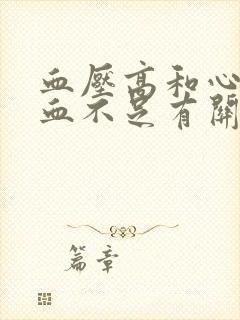 血壓高和心
血不足有關
篇章